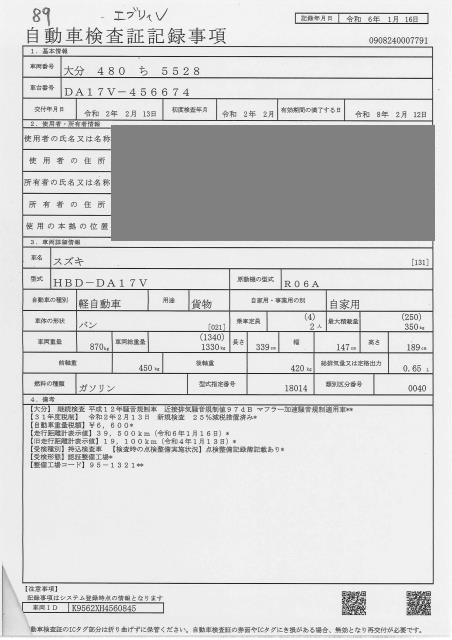 89 エブリィV
記録年月日 令和 6年 1月 16日
自動車検査証記録事項
0908240007791
1. 基本情報
車両番号 大分 480 ち 5528
車台番号 DA17V-456674
交付年月日 令和 2年 2月 13日 初度検査年月 令和 2年 2月 有効期間の満了する日 令和 8年 2月 12日
2. 使用者・所有者情報
使用者の氏名又は名称
使用者の住所
所有者の氏名又は名称
所有者の住所
使用の本拠の位置
3. 車両詳細情報
車名 スズキ [131]
型式 HBD-DA17V 原動機の型式 R06A
自動車の種別 軽自動車 用途 貨物 自家用・事業用の別 自家用
車体の形状 バン [021] 乗車定員 (4) 2人 最大積載量 (250) 350kg
車両重量 870kg 車両総重量 (1340) 1330kg 長さ 339cm 幅 147cm 高さ 189cm
前軸重 450kg 後軸重 420kg 総排気量又は定格出力 0.65 L
燃料の種類 ガソリン 型式指定番号 18014 類別区分番号 0040
4. 備考
【大分】 継続検査 平成12年騒音規制車 近接排気騒音規制値97dB マフラー加速騒音規制適用車**
【31年度税制】 令和2年2月13日 新規検査 25%減税措置済み*
【自動車重量税額】¥6,600*
【走行距離計表示値】39,500km(令和6年1月16日)*
【旧走行距離計表示値】19,100km(令和4年1月13日)*
【受検種別】持込検査車 【検査時の点検整備実施状況】点検整備記録簿記載あり*
【受検形態】認証整備工場*
【整備工場コード】95-1321**
【注意事項】
記録事項はシステム登録時点の情報となります
車両ID K9562XH4560845
自動車検査証のICタグ部分は折り曲げずに保管ください。自動車検査証の券面やICタグにき損がある場合、無効となり再交付が必要です。